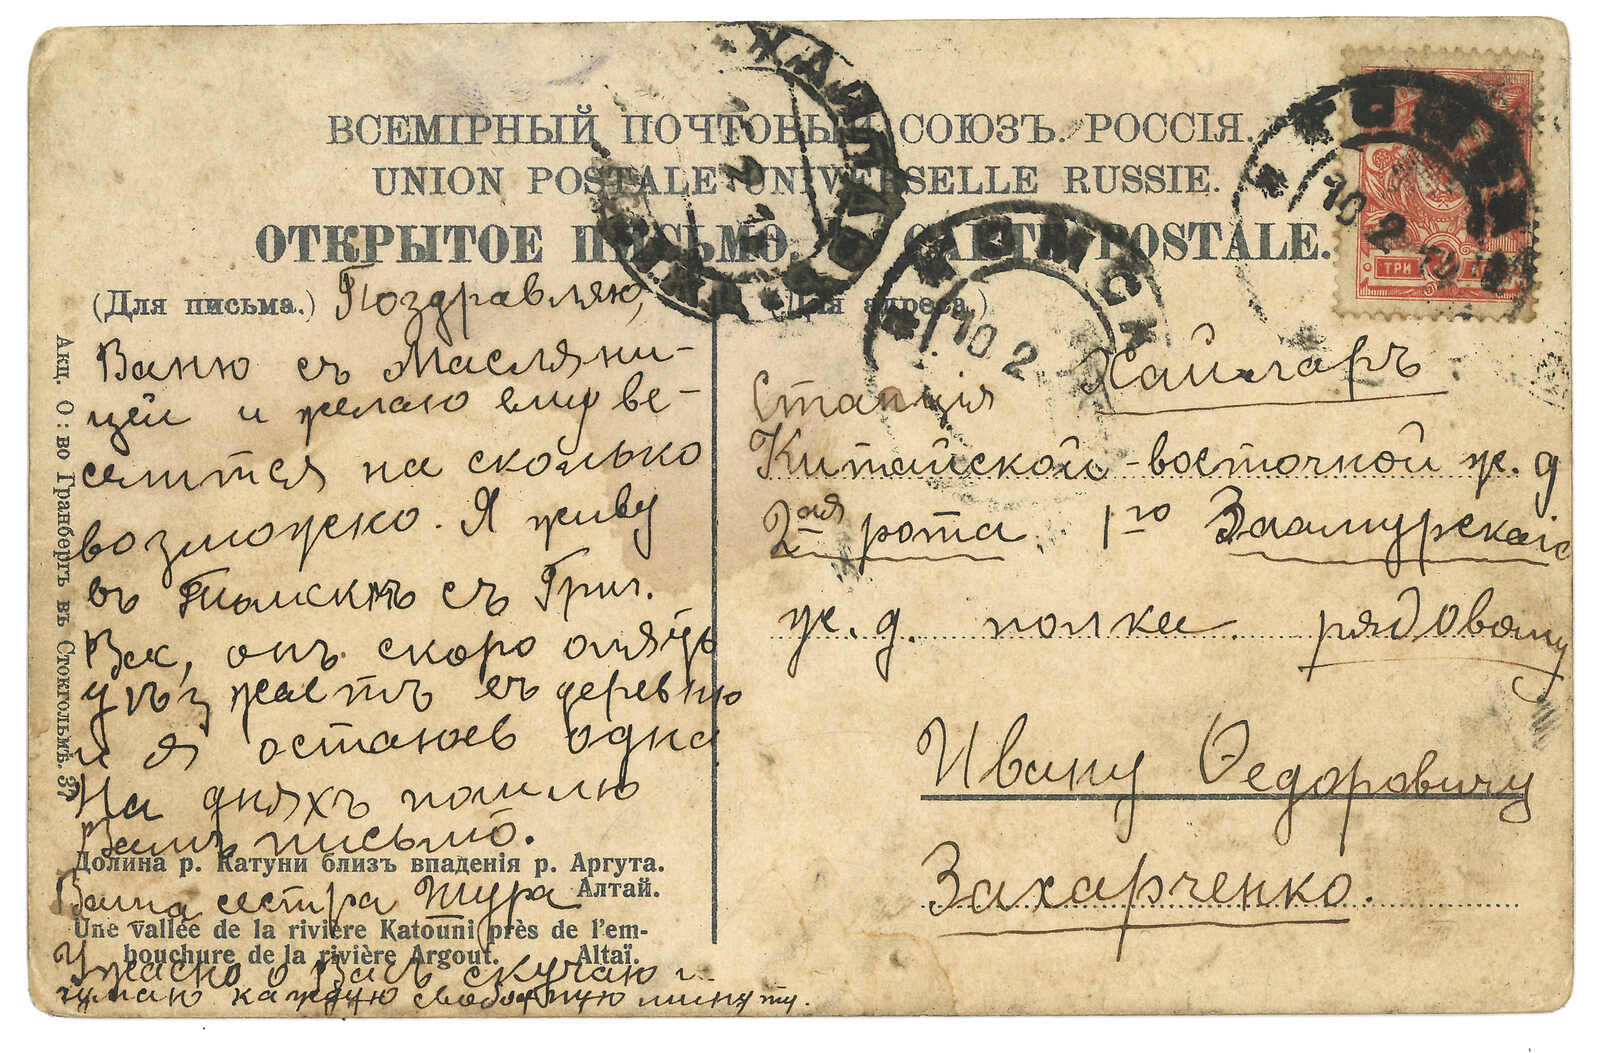 ВСЕМІРНЫЙ ПОЧТОВЫЙ СОЮЗЪ. РОССІЯ.
UNION POSTALE UNIVERSELLE RUSSIE.
ОТКРЫТОЕ ПИСЬМО. CARTE POSTALE.
(Для письма.)
(Для адреса.)
Поздравляю,
Ваню съ Маслени-
цей и желаю ему ве-
селится на сколько
возможно. Я живу
въ Томскъ съ Григ.
Вас, онъ скоро опять
уѣзжаетъ въ деревню
и я остаюсь одна
На дняхъ пошлю
Вамъ письмо.
Долина р. Катуни близъ впаденія р. Аргута.
Алтай.
Ваша сестра Шура
Une vallée de la rivière Katouni près de l'em-
bouchure de la rivière Argout. Altaï.
Ужасно о Васъ скучаю и
думаю каждую свободную минуту.
Акц. О:во Гранбергъ въ Стокгольмѣ. 37
ХАЙЛАРЪ
ТОМСКЪ
10 2
ТОМСКЪ
10 2
ТРИ
Станція Хайларъ
Китайской-восточной ж. д
2ая рота 1го Заамурскаго
ж. д. полка рядовому
Ивану Ѳедоровичу
Захарченко.